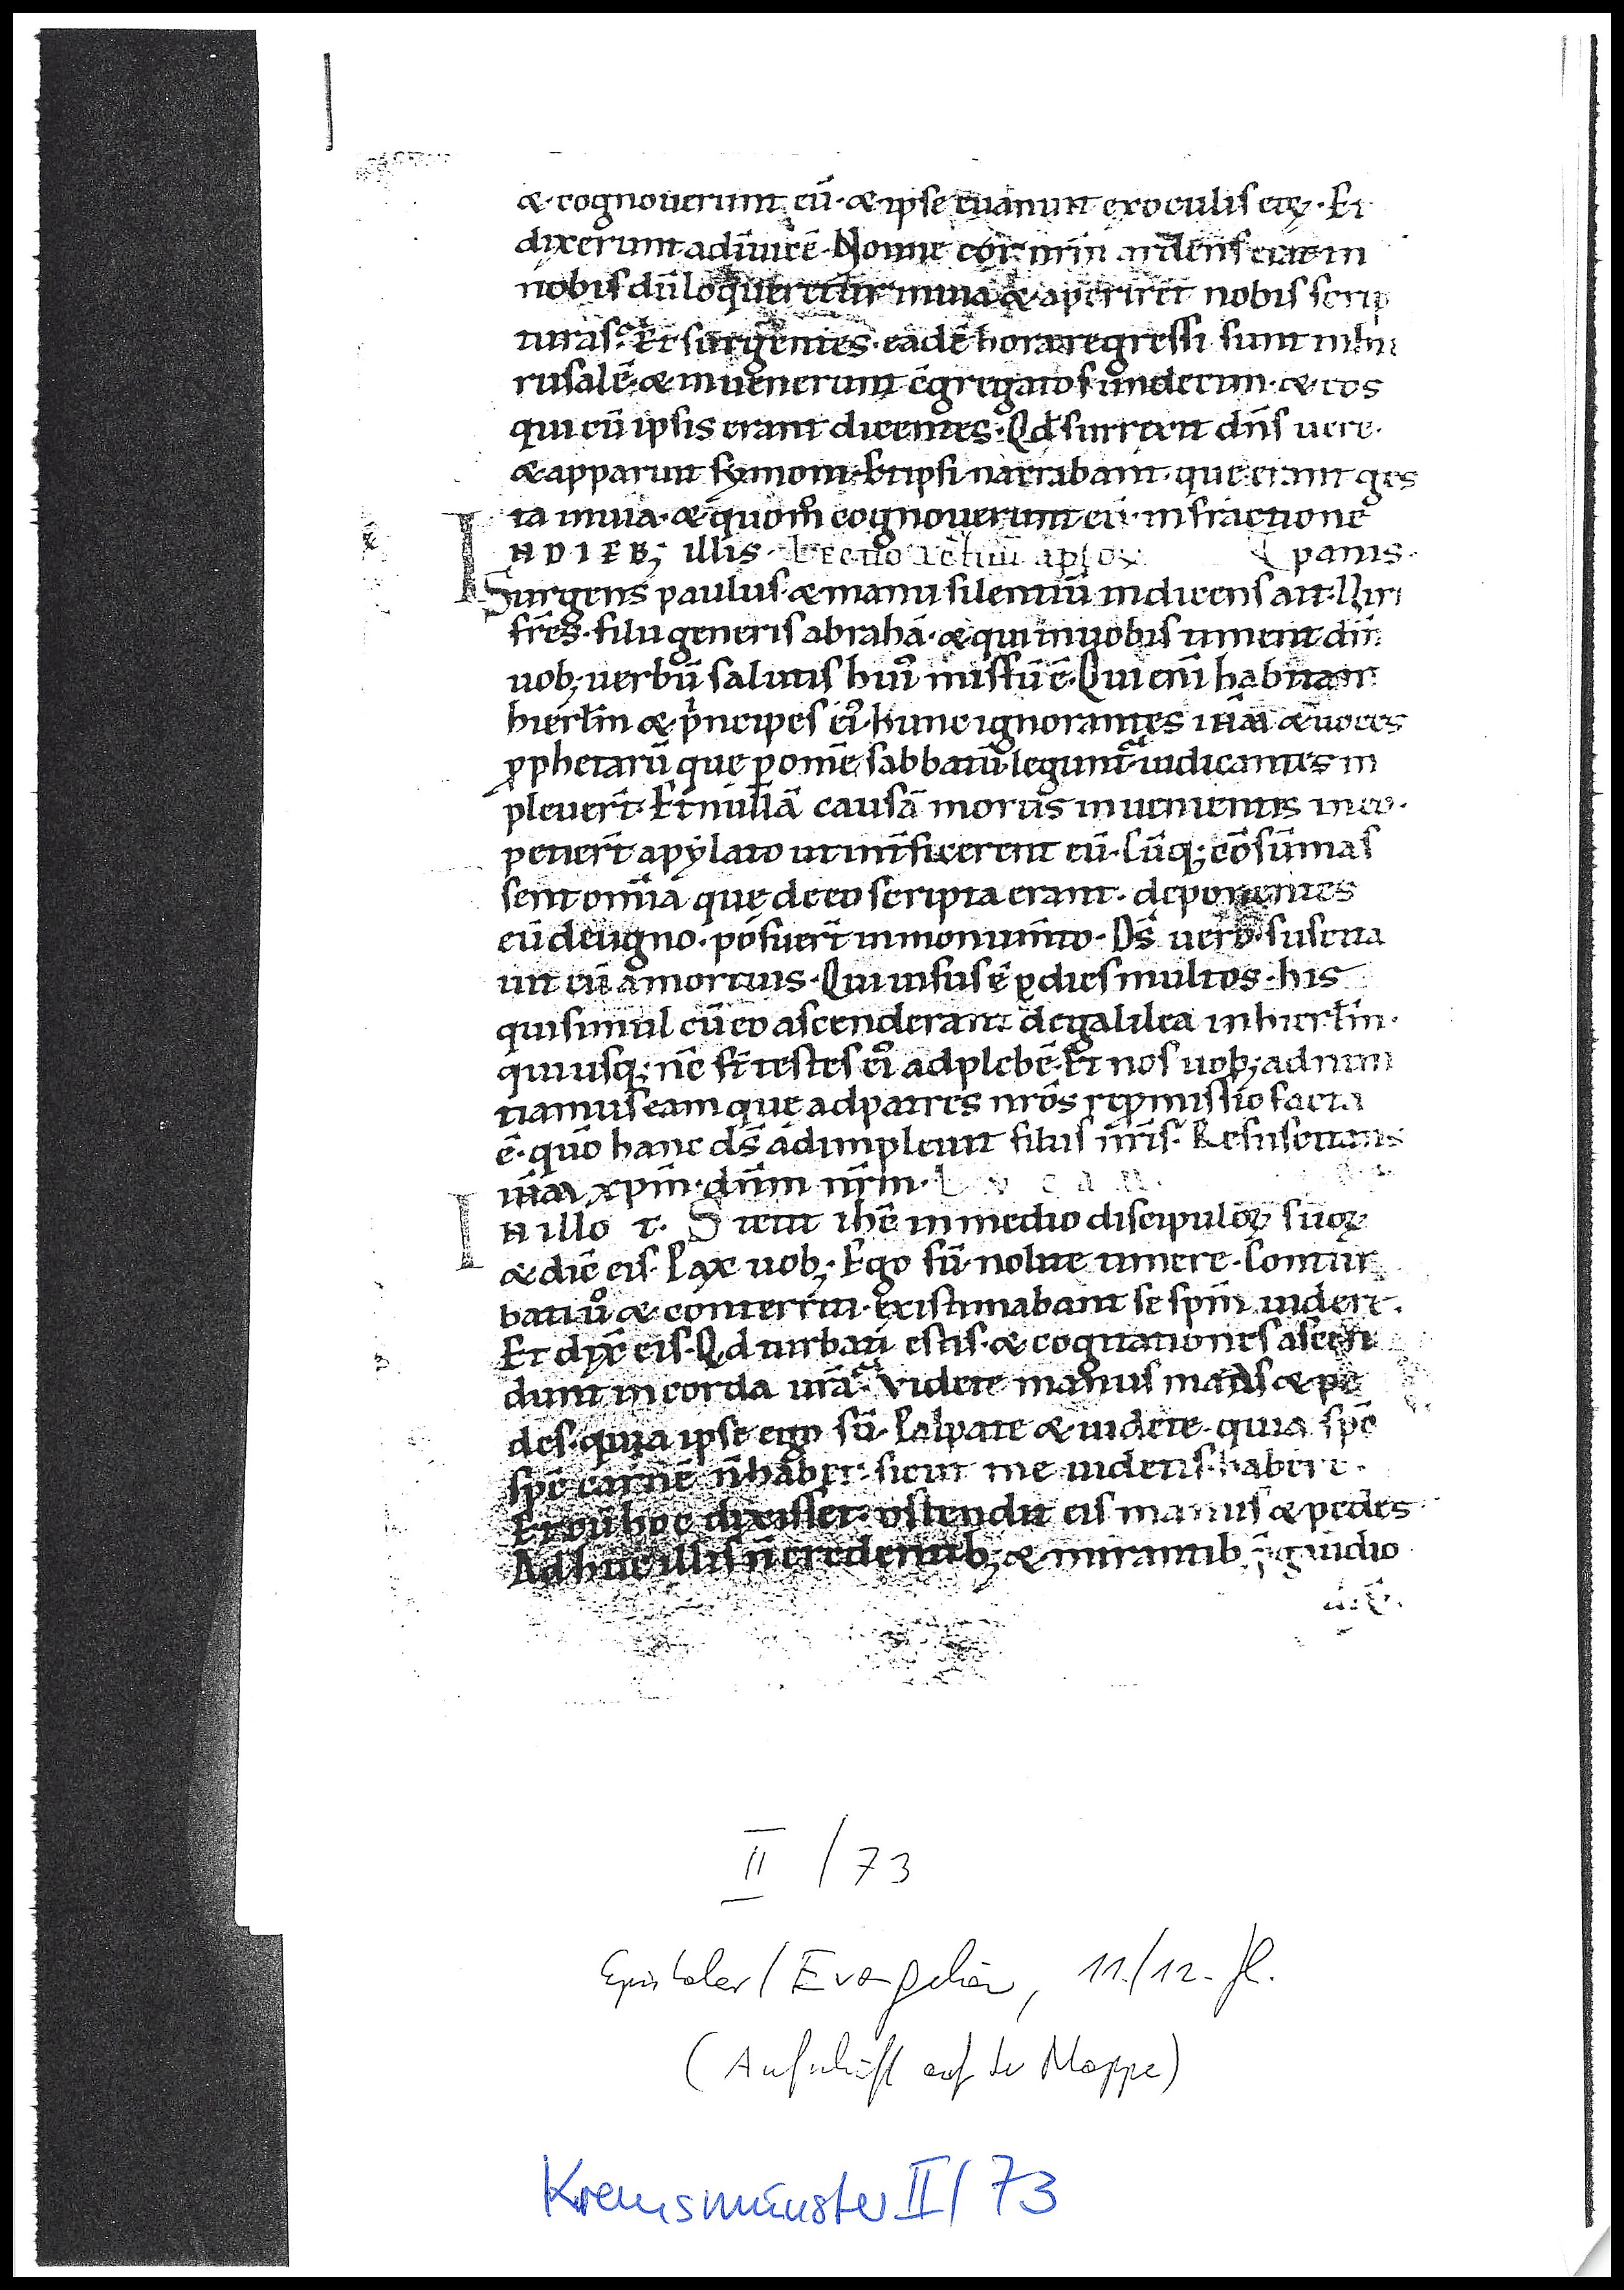 & cognouerunt eū · & ipse euanuit exoculis eoꝝ · Et
dixerunt adiuuicē · Nonne cor nrm ardens erat in
nobis dū loqueretur inuia & aperiret nobis scrip
turas · Et surgentes · eadē hora regressi sunt inhie
rusalē · & inuenerunt ꝯgregatos undecim · & eos
qui cū ipsis erant dicentes · Qd surrexit dn̄s uere ·
& apparuit symoni · Et ipsi narrabant · quę erant ges
ta inuia · & quom̊ cognouerunt eū · infractione
IN DIEB; illis · Lectio actuū aplꝝ panis ·
Surgens paulus · & manu silentiū indicens ait · Uiri
fr̄es · filii generis abrahā · & qui inuobis timent dn̄
uob; uerbū salutis hui᷒ missū ē · Qui eni habitant
hierlm̄ & p̍ncipes ei᷒ · hunc ignorantes ihm̄ & uoces
ꝓphetarū quę ꝑ omē sabbatū legunt᷑ iudicantes in
pleuerī · Et nullā causā mortis inuenientes ineo ·
petierī apylato ut int̄ficerent eū · Cūq; cōsūmas
sent omia quę deeo scripta erant · deponentes
eū deligno · posuerī inmonum̄to · Ds̄ uero suscita
uit eū amortuis · Qui uisus ē ꝑ dies multos · his
qui simul cū eo ascenderant degalilea inhierlm̄ ·
qui usq; nc̄ st̄ testes ei᷒ adplebē · Et nos uob; adnun
tiamus eam quę adpatres nros repmissio facta
ē · qm̄ hanc ds̄ adimpleuit filiis nr̄is · Resuscitans
ihm̄ xpm̄ · dn̄m nr̄m · L U C A M ·
IN illo t · Stetit ihc̄ inmedio discipuloꝝ suoꝝ
& dic̄ eis · Pax uob; · Ego sū · nolite timere · Contur
bati ů & conterriti · existimabant se spm̄ uidere ·
Et dix̄ eis · Qd turbati estis · & cogitationes ascen
dunt incorda ur̄a · Videte manus meas & pe
des · quia ipse ego sū · Palpate & uidete · quia spc̄
spc̄ carnē n̄ habet · sicut me uidetis habere ·
Et cū hoc dixisset · ostendit eis manus & pedes
Adhuc illis n̄ credentib; & mirantib; p̄ gaudio
II / 73
Epistolar / Evangeliar, 11./12. Jh.
(Aufschrift auf der Mappe)
Kremsmünster II / 73